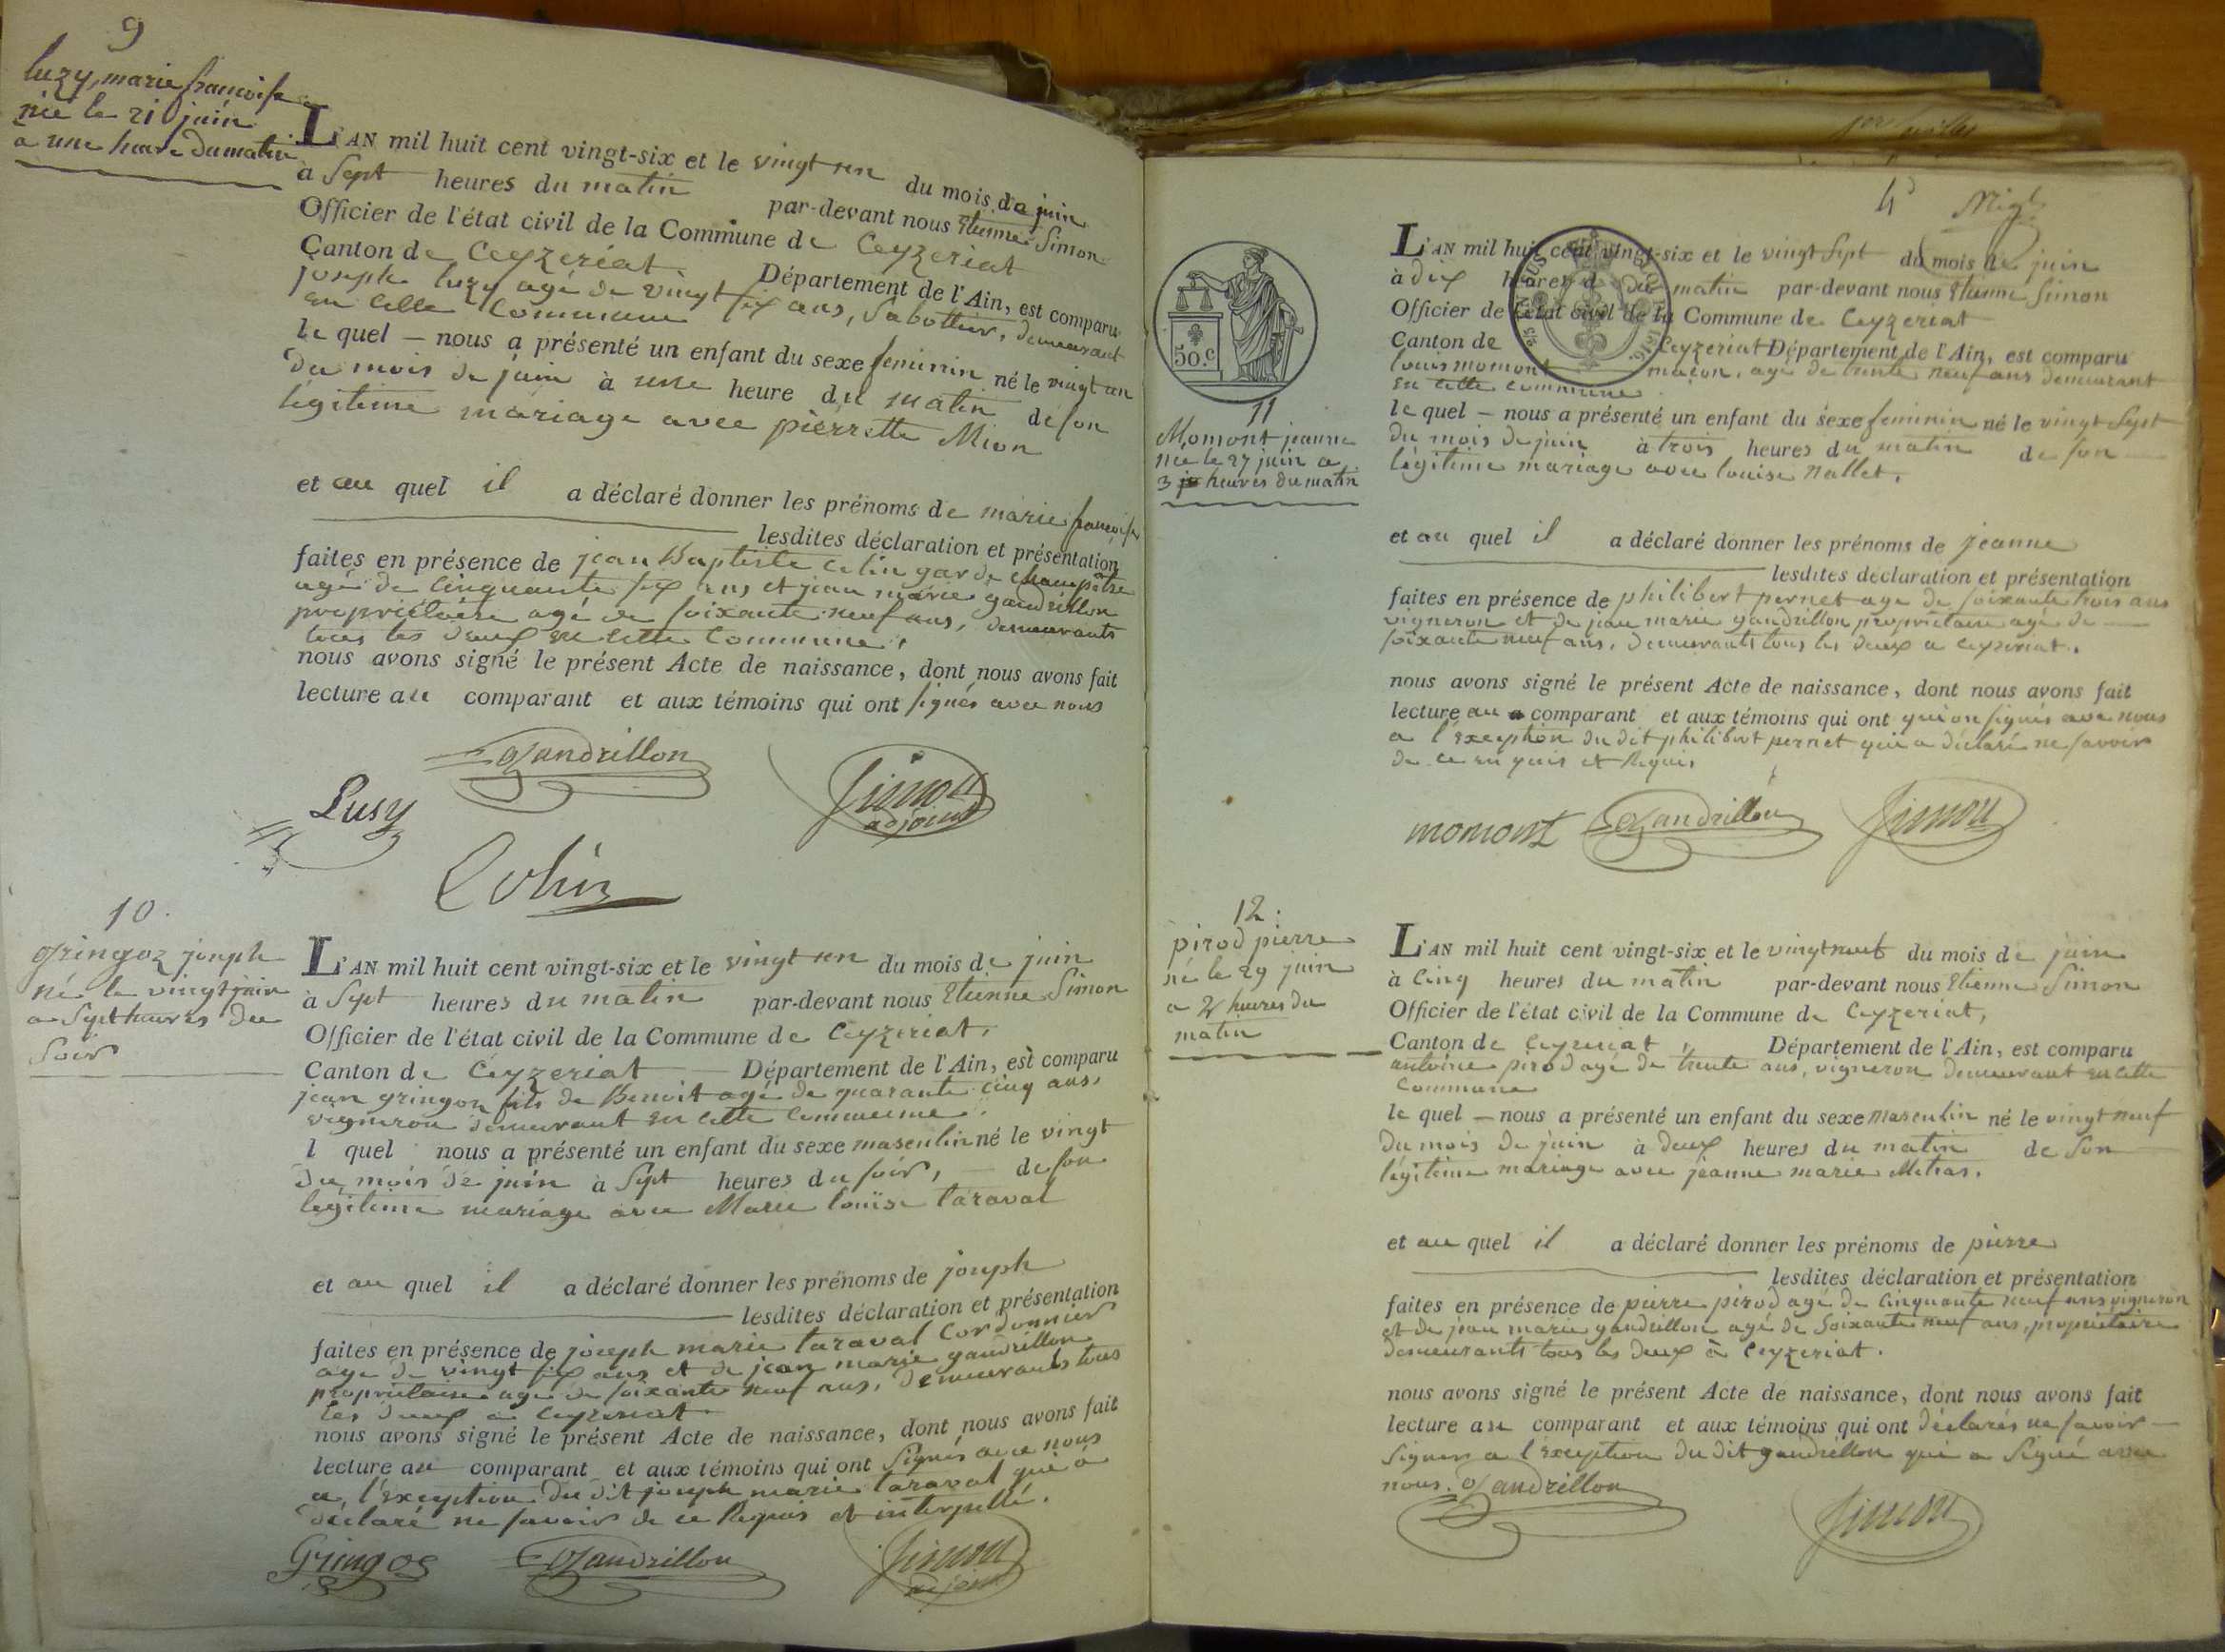 9
luzy, marie francoise
née le 21 juin
a une heure du matin
L'AN mil huit cent vingt-six et le vingt un du mois de juin
à Sept heures du matin par-devant nous Etienne Simon
Officier de l'état civil de la Commune de Ceyzeriat
Canton de Ceyzeriat Département de l'Ain, est comparu
joseph luzy agé de vingt six ans, Sabottier, demeurant
en cette commune
le quel — nous a présenté un enfant du sexe feminin né le vingt un
du mois de juin à une heure du matin de son
légitime mariage avec pierrette Mion
et au quel il a déclaré donner les prénoms de marie francoise
lesdites déclaration et présentation
faites en présence de jean Baptiste Colin garde champêtre
agé de cinquante six ans et jean marie gandrillon
propriétaire agé de soixante neuf ans, demeurants
tous les deux en cette commune,
nous avons signé le présent Acte de naissance, dont nous avons fait
lecture au comparant et aux témoins qui ont signés avec nous
Gandrillon
Lusy
Simon
adjoint
Colin
10.
gringoz joseph
né le vingt juin
a Sept heures du
Soir
L'AN mil huit cent vingt-six et le vingt un du mois de juin
à Sept heures du matin par-devant nous Etienne Simon
Officier de l'état civil de la Commune de Ceyzeriat,
Canton de Ceyzeriat Département de l'Ain, est comparu
jean gringoz fils de Benoit agé de quarante cinq ans,
vigneron demeurant en cette commune.
l quel nous a présenté un enfant du sexe masculin né le vingt
du mois de juin à Sept heures du soir, — de son
légitime mariage avec Marie louise taraval
et au quel il a déclaré donner les prénoms de joseph
lesdites déclaration et présentation
faites en présence de joseph marie taraval Cordonnier
agé de vingt six ans et de jean marie gandrillon
propriétaire agé de soixante neuf ans, demeurants tous
les deux a Ceyzeriat
nous avons signé le présent Acte de naissance, dont nous avons fait
lecture au comparant et aux témoins qui ont Signés avec nous
a l'exception du dit joseph marie taraval qui a
déclaré ne savoir de ce Requis et interpellé.
Gringoz
Gandrillon
Simon
adjoint
4
L'AN mil huit cent vingt-six et le vingt Sept du mois de juin
à dix heures du matin par-devant nous Etienne Simon
Officier de l'état civil de la Commune de Ceyzeriat
Canton de Ceyzeriat Département de l'Ain, est comparu
louis momont maçon, agé de trente neuf ans demeurant
en cette commune
50.c
11
Momont jeanne
née le 27 juin a
3 heures du matin
le quel — nous a présenté un enfant du sexe feminin né le vingt Sept
du mois de juin à trois heures du matin de son
légitime mariage avec louise Nallet,
et au quel il a déclaré donner les prénoms de jeanne
lesdites déclaration et présentation
faites en présence de philibert pernet agé de soixante trois ans
vigneron et de jean marie gandrillon propriétaire agé de
soixante neuf ans, demeurants tous les deux a Ceyzeriat.
nous avons signé le présent Acte de naissance, dont nous avons fait
lecture au comparant et aux témoins qui ont qui on signés avec nous
a l'exception du dit philibert pernet qui a déclaré ne savoir
de ce enquis et Requis
momont
Gandrillon
Simon
12.
pirod pierre
né le 29 juin
a 2 heures du
matin
L'AN mil huit cent vingt-six et le vingt neuf du mois de juin
à Cinq heures du matin par-devant nous Etienne Simon
Officier de l'état civil de la Commune de Ceyzeriat,
Canton de Ceyzeriat, Département de l'Ain, est comparu
antoine pirod agé de trente ans, vigneron demeurant en cette
Commune
le quel — nous a présenté un enfant du sexe masculin né le vingt neuf
du mois de juin à deux heures du matin de Son
légitime mariage avec jeanne marie Metras.
et au quel il a déclaré donner les prénoms de pierre
lesdites déclaration et présentation
faites en présence de pierre pirod agé de Cinquante neuf ans vigneron
et de jean marie gandrillon agé de Soixante neuf ans, propriétaire
demeurants tous les deux à Ceyzeriat.
nous avons signé le présent Acte de naissance, dont nous avons fait
lecture au comparant et aux témoins qui ont déclarés ne savoir
Signer a l'exception du dit gandrillon qui a Signé avec
nous. Gandrillon
Simon